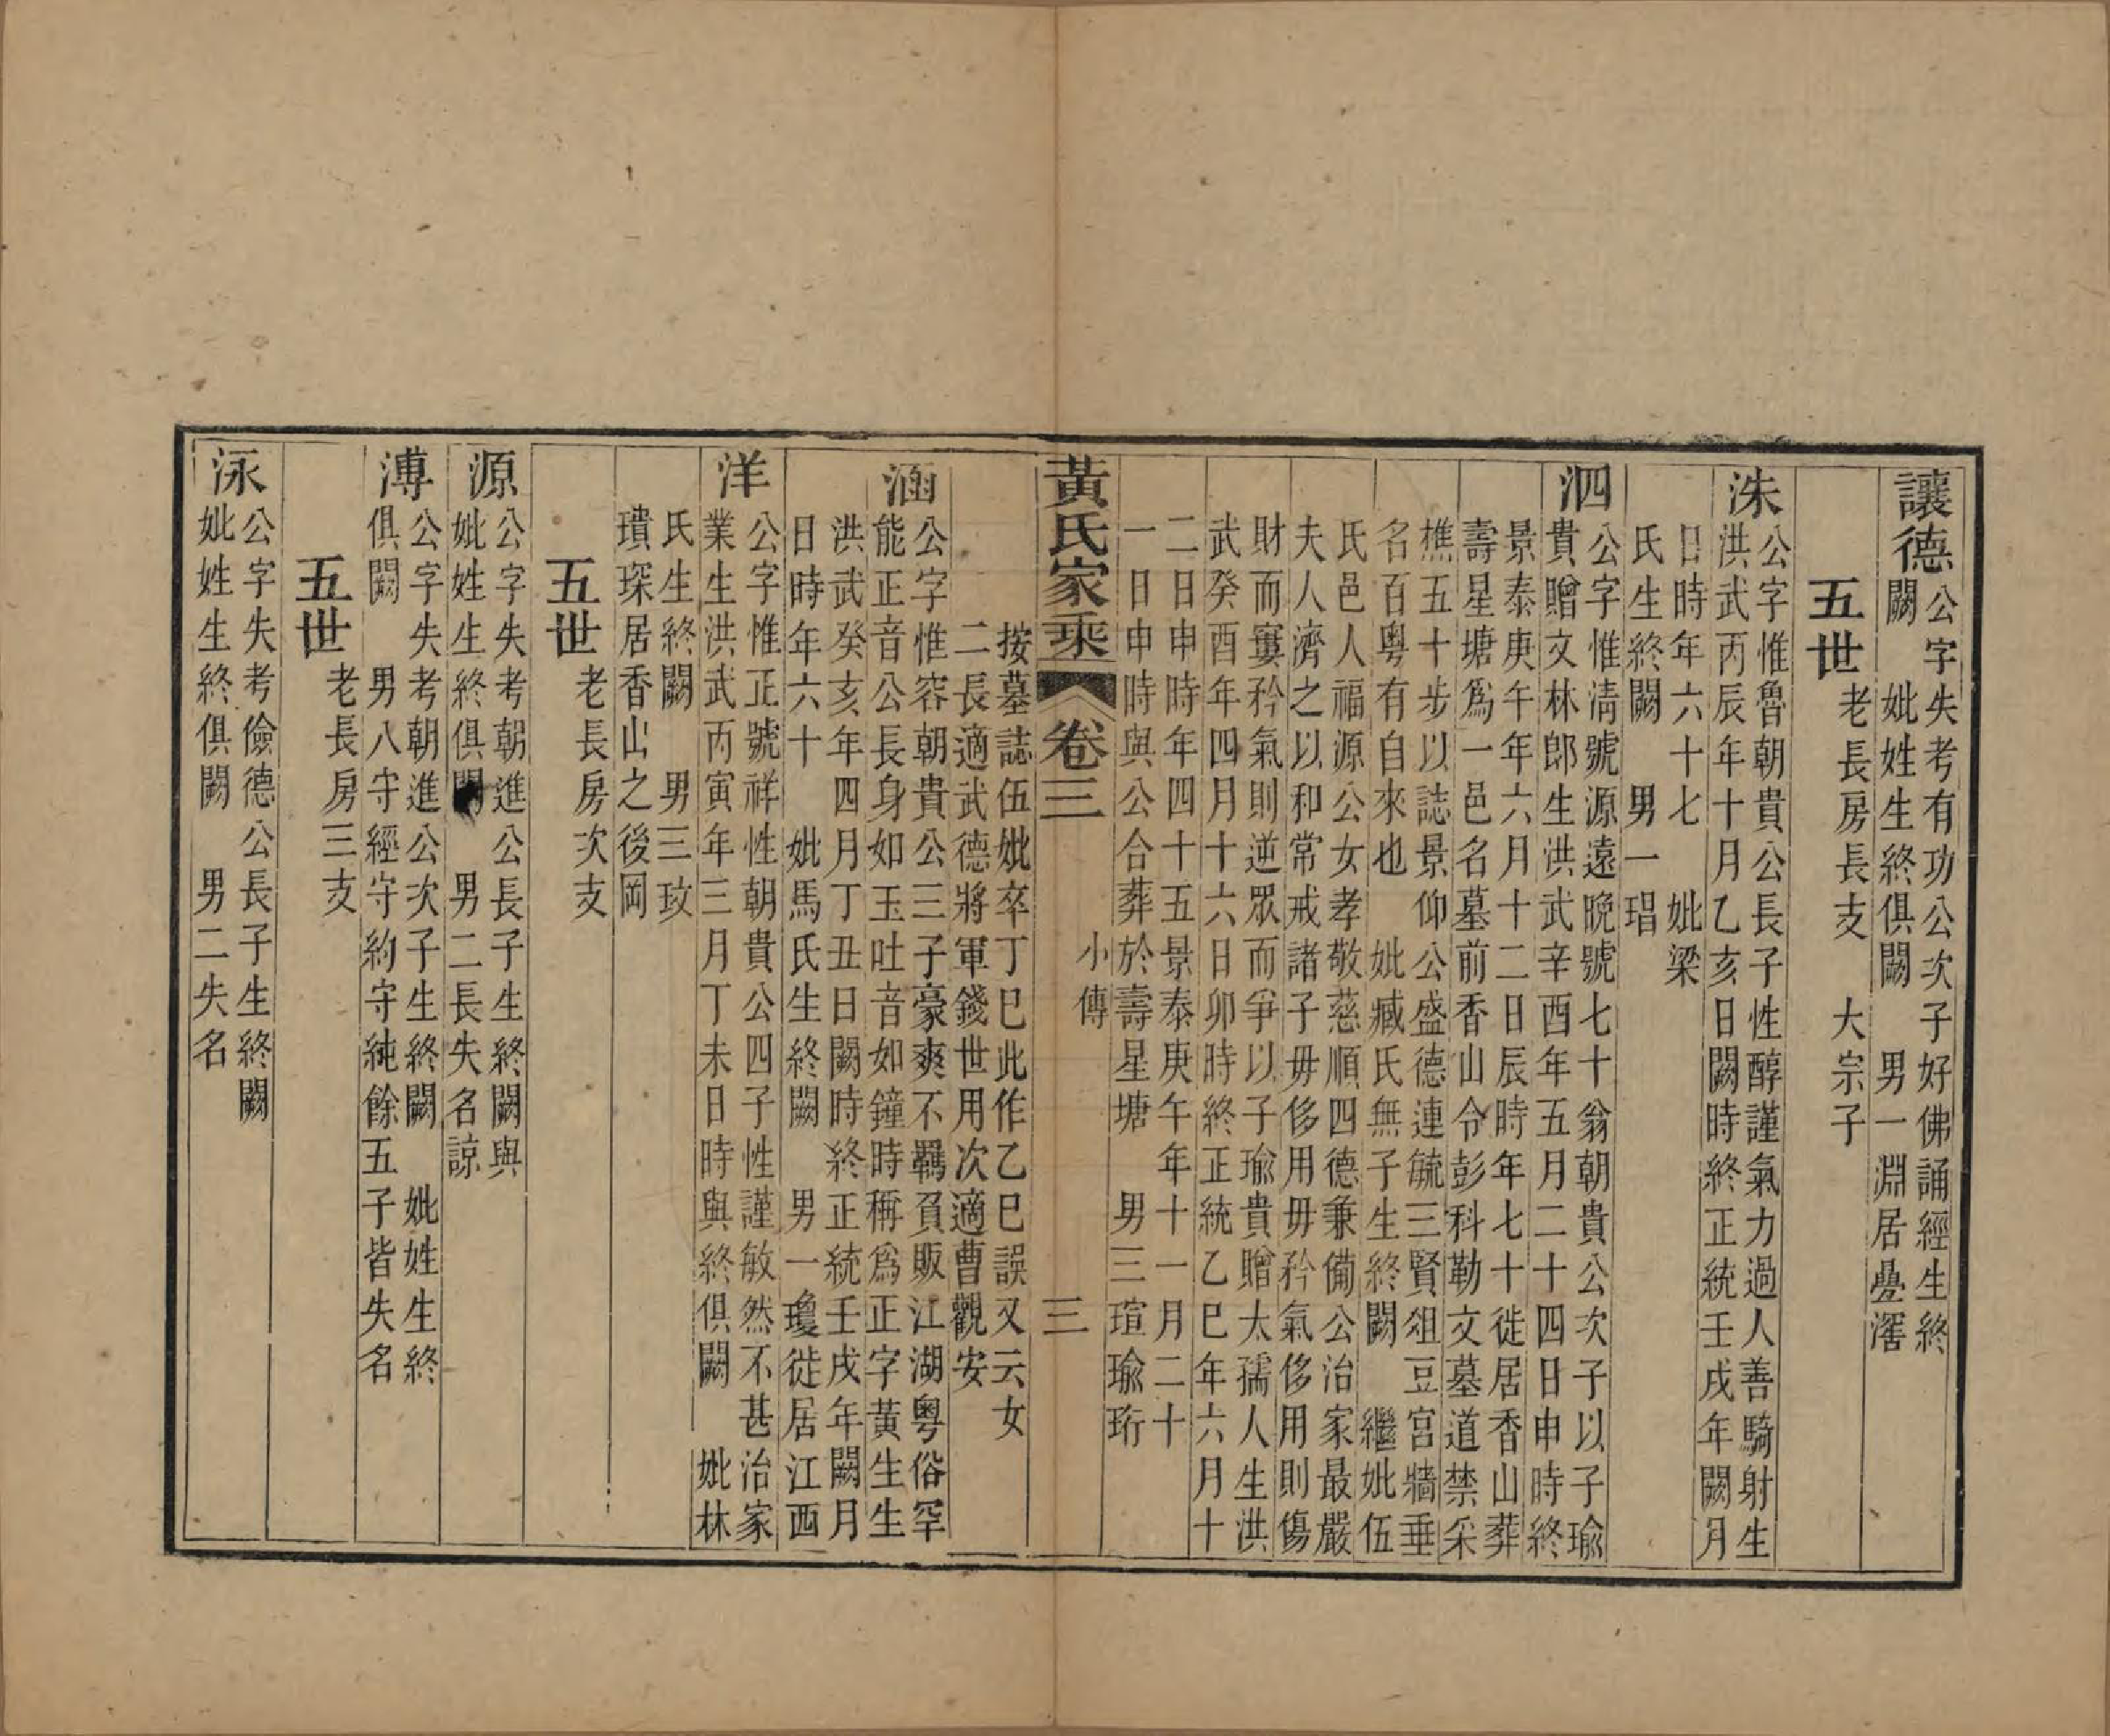 讓德
公字失考有功公次子好佛誦經生終
闕　妣姓生終俱闕　男一淵居疊滘
五世　老長房長支　大宗子
洙
公字惟魯朝貴公長子性醇謹氣力過人善騎射生
洪武丙辰年十月乙亥日闕時終正統壬戌年闕月
日時年六十七　妣梁
氏生終闕　男一琩
泗
公字惟淸號源遠晚號七十翁朝貴公次子以子瑜
貴贈文林郎生洪武辛酉年五月二十四日申時終
景泰庚午年六月十二日辰時年七十徙居香山葬
壽星塘爲一邑名墓前香山令彭科勒文墓道禁采
樵五十步以誌景仰公盛德連毓三賢俎豆宮牆垂
名百粵有自來也　妣臧氏無子生終闕　繼妣伍
氏邑人福源公女孝敬慈順四德兼備公治家最嚴
夫人濟之以和常戒諸子毋侈用毋矜氣侈用則傷
財而窶矜氣則逆眾而爭以子瑜貴贈太孺人生洪
武癸酉年四月十六日卯時終正統乙巳年六月十
二日申時年四十五景泰庚午年十一月二十
一日申時與公合葬於壽星塘　男三瑄瑜珩
黃氏家乘　卷三　小傳　三
按墓誌伍妣卒丁巳此作乙巳誤又云女
二長適武德將軍錢世用次適曹觀安
涵
公字惟容朝貴公三子豪爽不羈負販江湖粵俗罕
能正音公長身如玉吐音如鐘時稱爲正字黃生生
洪武癸亥年四月丁丑日闕時終正統壬戌年闕月
日時年六十　妣馬氏生終闕　男一瓊徙居江西
洋
公字惟正號祥性朝貴公四子性謹敏然不甚治家
業生洪武丙寅年三月丁未日時與終俱闕　妣林
氏生終闕　男三玫
璝琛居香山之後岡
五世　老長房次支
源
公字失考朝進公長子生終闕與
妣姓生終俱闕　男二長失名諒
溥
公字失考朝進公次子生終闕　妣姓生終
俱闕　男八守經守約守純餘五子皆失名
五世　老長房三支
泳
公字失考儉德公長子生終闕
妣姓生終俱闕　男二失名